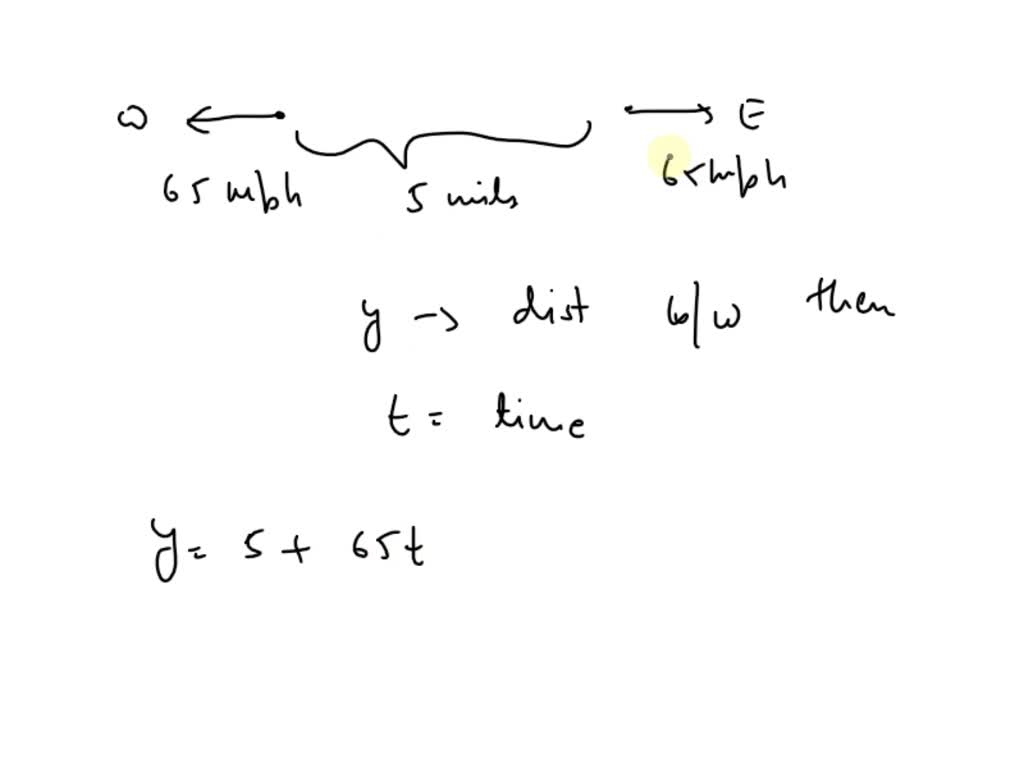 W E
65 mph 5 mils 65 mph
y → dist b/w then
t = time
y = 5 + 65t